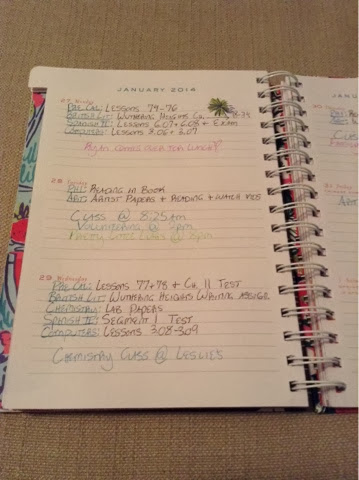 JANUARY 2014
27 Monday
Pre Cal: Lessons 74-76
British Lit: Wuthering Heights Ch.
Spanish II: Lessons 6.07 + 6.08 + Exam
Computers: Lessons 3.06 + 3.07
Ryan comes over for lunch!
28 Tuesday
Reading in Book
Art: Artist Papers + Reading + Watch
Class @ 8:25am
Volunteering @ 4pm
Party @ 8pm
29 Wednesday
Pre Cal: Lessons 77+78 + Ch. 11 Test
British Lit: Wuthering Heights Writing
Chemistry: Lab Papers
Spanish II: Segment 1 Test
Computers: Lessons 3.08-3.09
Chemistry Class @ Leslie's